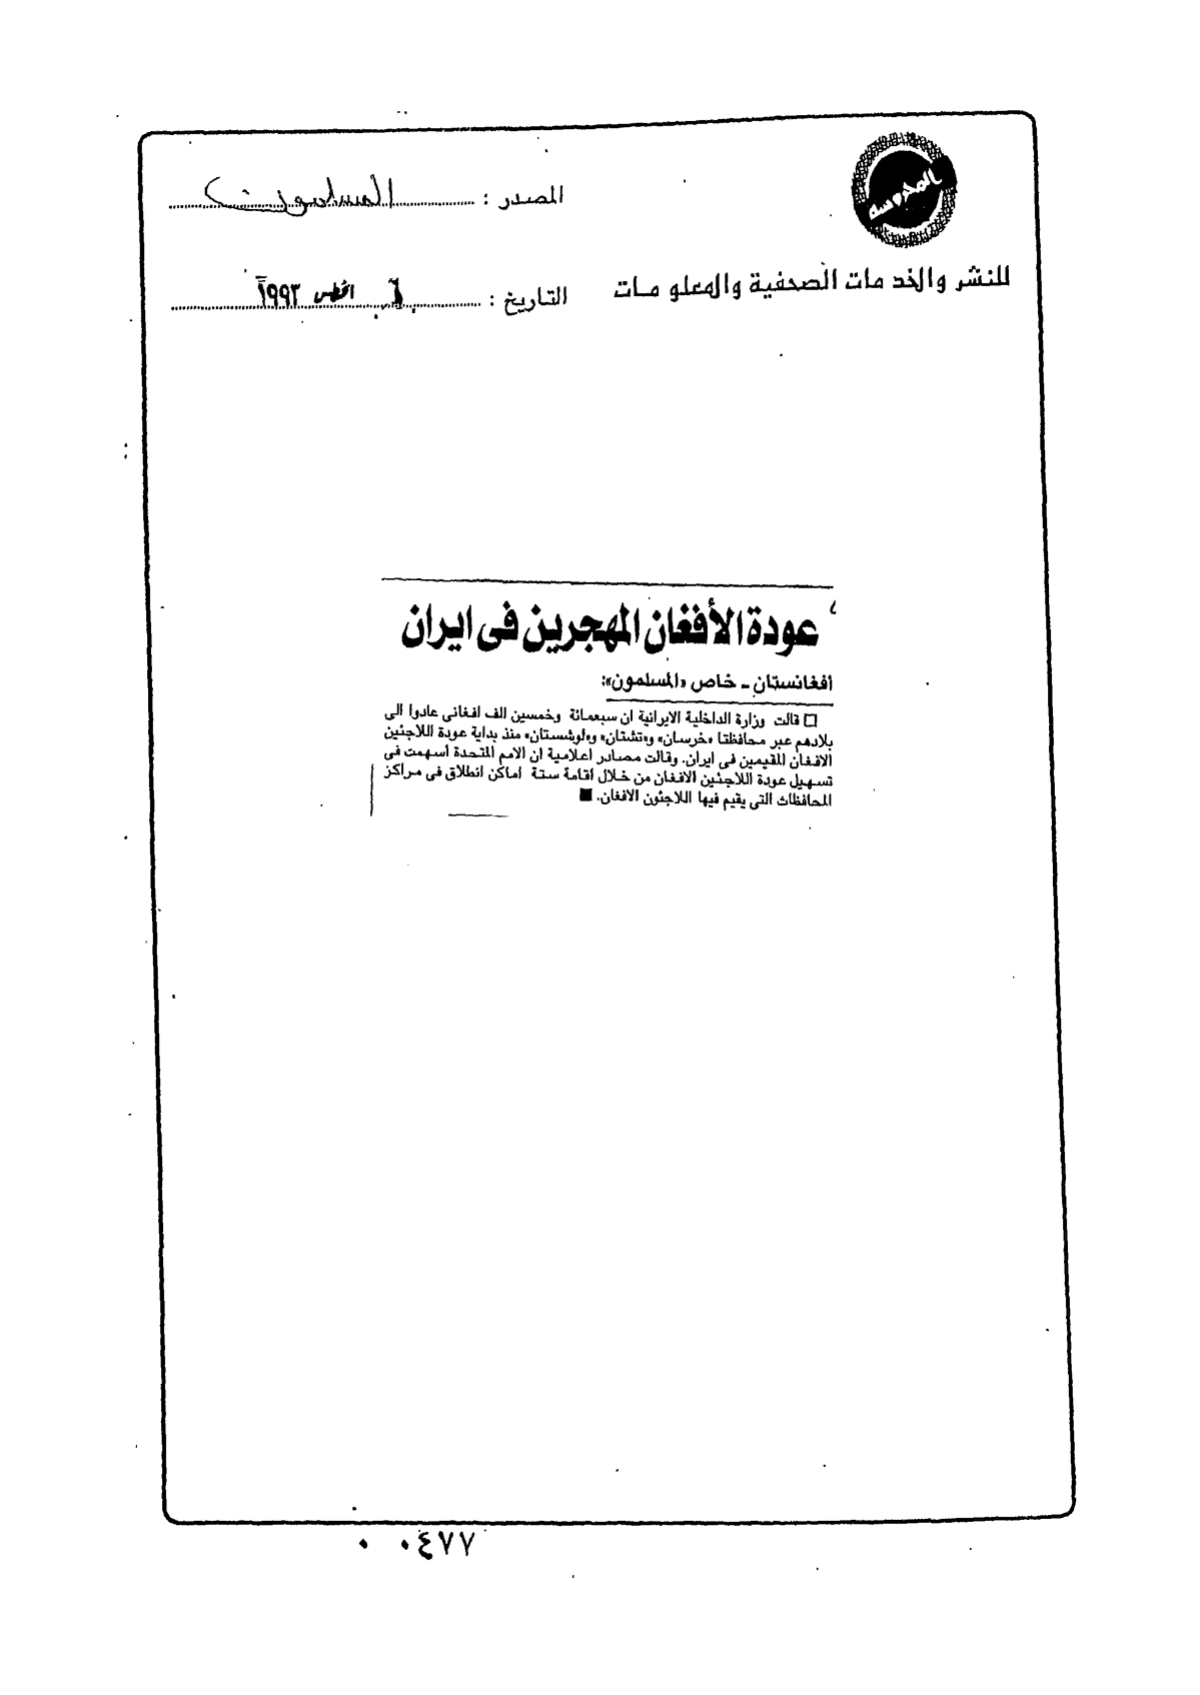 المحروسة
المصدر : المسلمون
للنشر والخدمات الصحفية والمعلومات
التاريخ : ٦ اغسطس ١٩٩٣
عودة الأفغان المهجرين فى ايران
افغانستان - خاص «المسلمون»:
□ قالت وزارة الداخلية الايرانية ان سبعمائة وخمسين الف افغانى عادوا الى
بلادهم عبر محافظتا «خرسان» و«تشتان» و«لوشستان» منذ بداية عودة اللاجئين
الافغان المقيمين فى ايران. وقالت مصادر اعلامية ان الامم المتحدة اسهمت فى
تسهيل عودة اللاجئين الافغان من خلال اقامة ستة اماكن انطلاق فى مراكز
المحافظات التى يقيم فيها اللاجئون الافغان. ■
٠٤٧٧